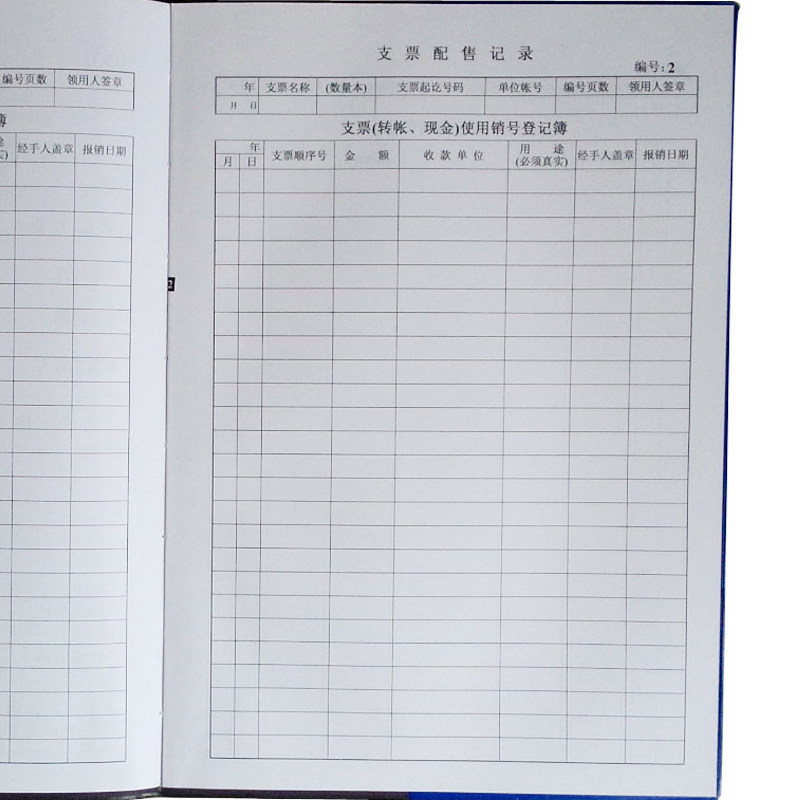 编号页数 领用人签章
簿
经手人盖章 报销日期
2
支票配售记录
编号:2
年 支票名称 (数量本) 支票起讫号码 单位帐号 编号页数 领用人签章
月 日
支票(转帐、现金)使用销号登记簿
年 支票顺序号 金额 收款单位 用途 经手人盖章 报销日期
月 日 (必须真实)